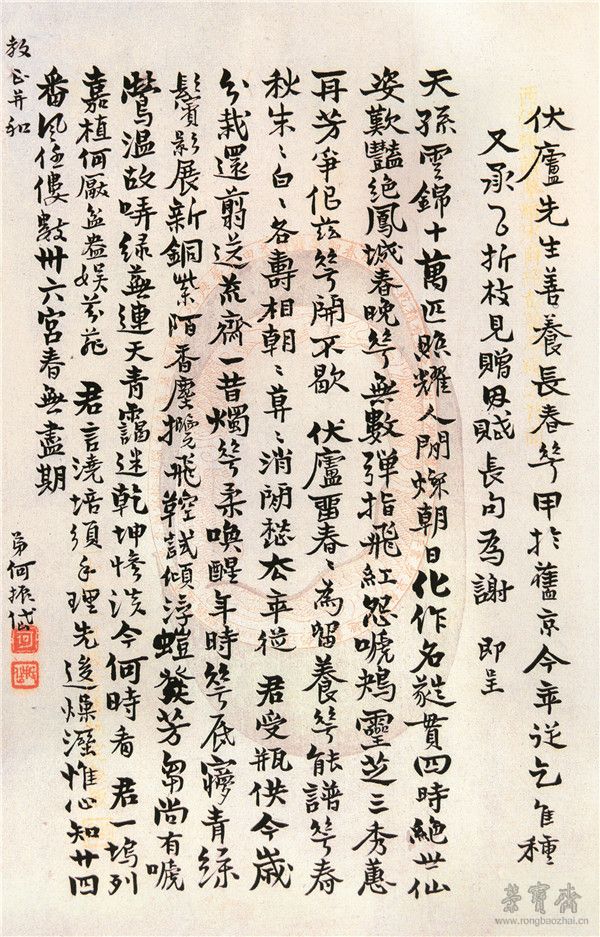 伏廬先生善養長春花甲於舊京今年從乞佳種
又承以折枝見贈因賦長句為謝 即呈
教正并和
天孫雲錦十萬匹照耀人間燦朝日化作名蘤貫四時絕世仙
姿歎豔絕鳳城春晚花無數彈指飛紅怨啼鴂靈芝三秀蕙
再芳爭似茲花開不歇 伏廬留春春為留養花能譜花春
秋朱朱白白各壽相朝朝莫莫消閒愁去年從 君受瓶供今歲
分栽還翦送荒齋一昔燭花柔喚醒年時花底夢青絲
鬢影展新銅紫陌香塵攬飛鞚試傾浮螘發芳芻尚有啼
鶯溫故哢綠蕪連天青靄迷乾坤慘淡今何時看 君一塢列
嘉植何厭盆盎娛芬菲 君言澆培須手理先後燥溼惟心知廿四
番風任僂數卅六宮春無盡期
弟何振岱
榮寶齋
www.rongbaozhai.cn